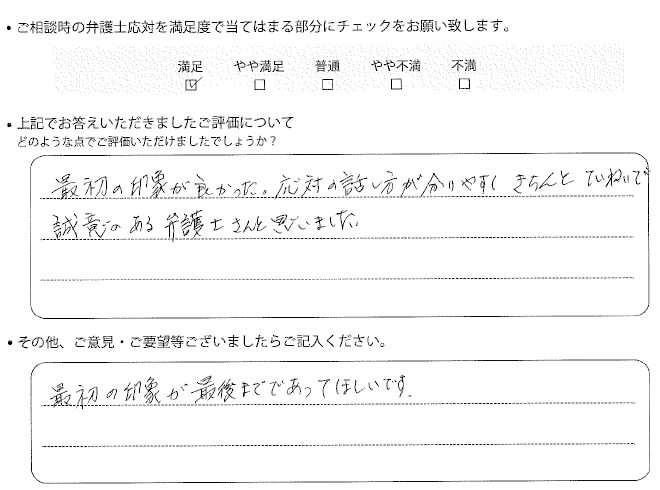 ・ご相談時の弁護士応対を満足度で当てはまる部分にチェックをお願い致します。
満足 やや満足 普通 やや不満 不満
☑ □ □ □ □
・上記でお答えいただきましたご評価について
どのような点でご評価いただけましたでしょうか？
最初の印象が良かった。応対の話し方が分りやすく きちんと ていねいで
誠意のある弁護士さんと思いました。
・その他、ご意見・ご要望等ございましたらご記入ください。
最初の印象が最後までであってほしいです。